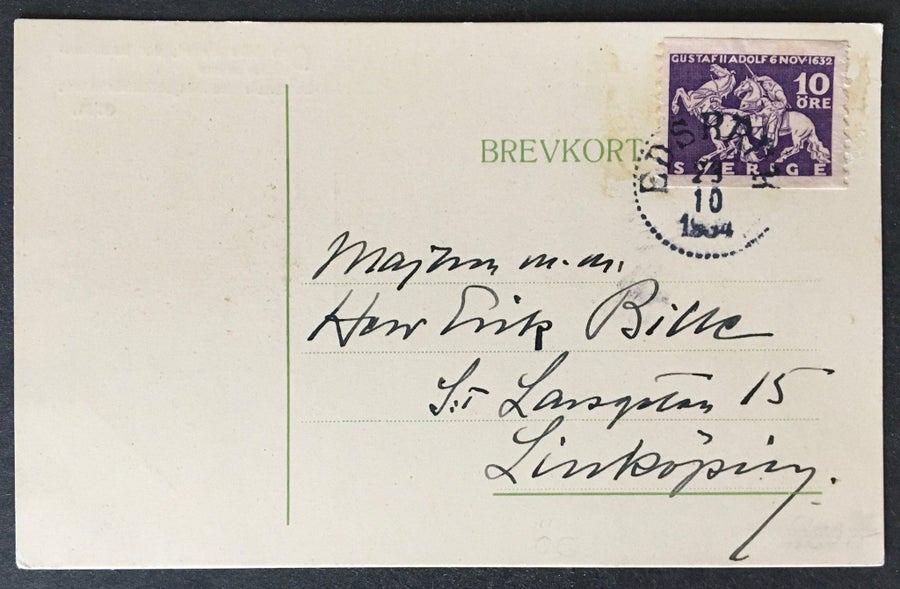 GUSTAF II ADOLF 6 NOV 1632
10
ÖRE
SVERIGE
BREVKORT
EDSBRUK
10
1934
Majoren m.m.
Herr Erik Bille
S:t Larsgatan 15
Linköping.